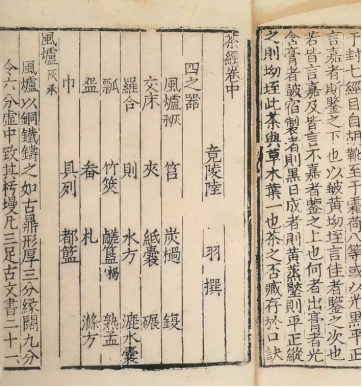 于封七經目自胡靴至于霜荷八等或以黑平正
言嘉者斯鑒之下也以皺黃坳垤言佳者鑒之次也
若皆言嘉及皆言不嘉者鑒之上也何者出膏者光
含膏者皺宿製者則黑日成者則黃蒸壓則平正縱
之則坳垤此茶與草木葉一也茶之否臧存於口訣
茶經卷中
竟陵陸 羽 撰
四之器
風爐灰承 筥 炭檛 鍑
交床 夾 紙囊 碾
羅合 則 水方 漉水囊
瓢 竹筴 鹺簋揭 熟盂
盌 畚 札 滌方
巾 具列 都籃
風爐灰承
風爐以銅鐵鑄之如古鼎形厚三分緣闊九分
令六分虛中致其杇墁凡三足古文書二十一